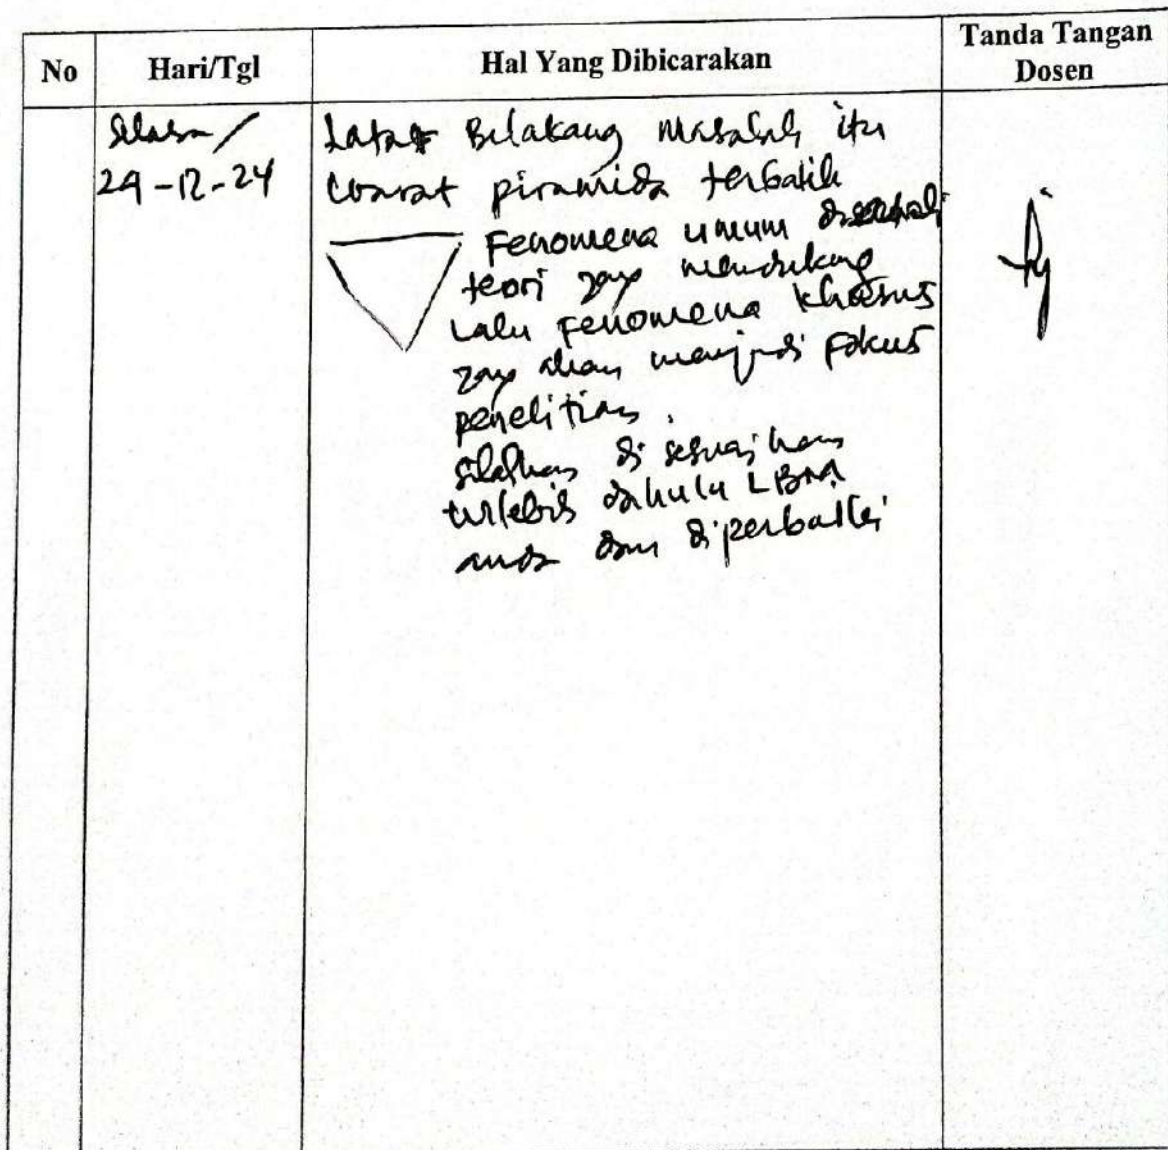 No Hari/Tgl Hal Yang Dibicarakan Tanda Tangan Dosen
Selasa /
24-12-24
Latar Belakang Masalah itu
ibarat piramida terbalik
Fenomena umum disertai
teori yang mendukung
Lalu Fenomena khusus
yang akan menjadi Fokus
penelitian.
silahkan di sesuaikan
terlebih dahulu LBM
anda dan diperbaiki